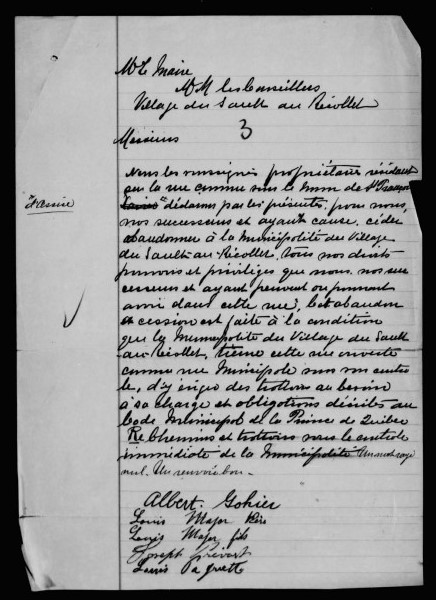 Mr Le Maire
M M les Conseillers
Village du Sault au Récollet
3
Messieurs
Nous les soussignés propriétaires résidant
sur la rue connue sous le nom de St François
d'Assise
déclarons par les présentes, pour nous,
nos successeurs et ayant cause, céder
abandonner à la Municipalité du Village
du Sault au Récollet, tous nos droits
pouvoirs et privilèges que nous, nos suc
cesseurs et ayant peuvent ou pourront
avoir dans cette rue, Cet abandon
et cession est faite à la condition
que la Municipalité du Village du Sault
au Récollet, tienne cette rue ouverte
comme rue Municipale sous son contrô
le, d'y ériger des trottoirs au besoin
à sa charge et obligations décrites au
Code Municipal de la Province de Québec
Re Chemins et trottoirs sous le controle
immédiate de la Municipalité Un mot rayé
nul. Un renvoi bon.
Albert. Gohier
Louis Major Père
Louis Major fils
Joseph Prévost
Louis Paquette